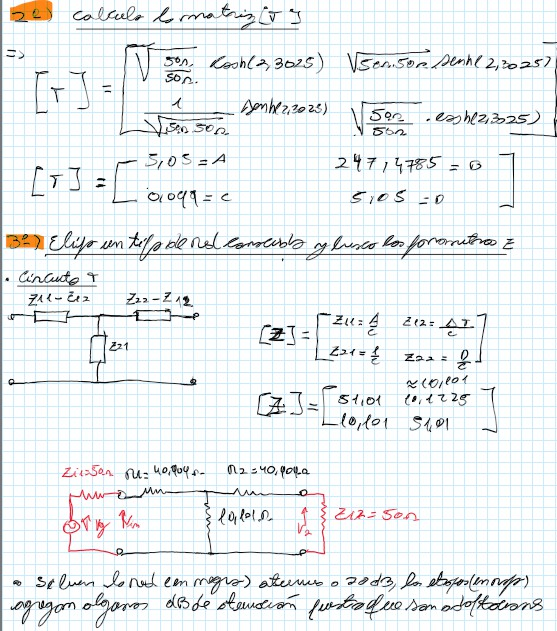 2º) calculo la matriz [T]
=>
[T] = [ √(50Ω/50Ω) cosh(2,3025)   √(50Ω.50Ω) senh(2,3025)
1/√(50Ω.50Ω) senh(2,3025)   √(50Ω/50Ω) . cosh(2,3025) ]
[T] = [ 5,05 = A   247,4785 = B
0,099 = C   5,05 = D ]
3º) Elijo un tipo de red conocida y busco los parametros Z
• Circuito T
Z11-Z12   Z22-Z12
Z21
[Z] = [ Z11 = A/C   Z12 = ΔT/C
Z21 = 1/C   Z22 = D/C ]
≈10,101
[Z] = [ 51,01   10,1225
10,101   51,01 ]
Zi1=50Ω   R1=40,909Ω   R2=40,909Ω
Vg   Vin   10,101Ω   V2   Zi2=50Ω
• Si bien la red (en negro) atenua a 20dB, las etapas (en rojo)
agregan algunos dB de atenuación puesto que son adaptadoras